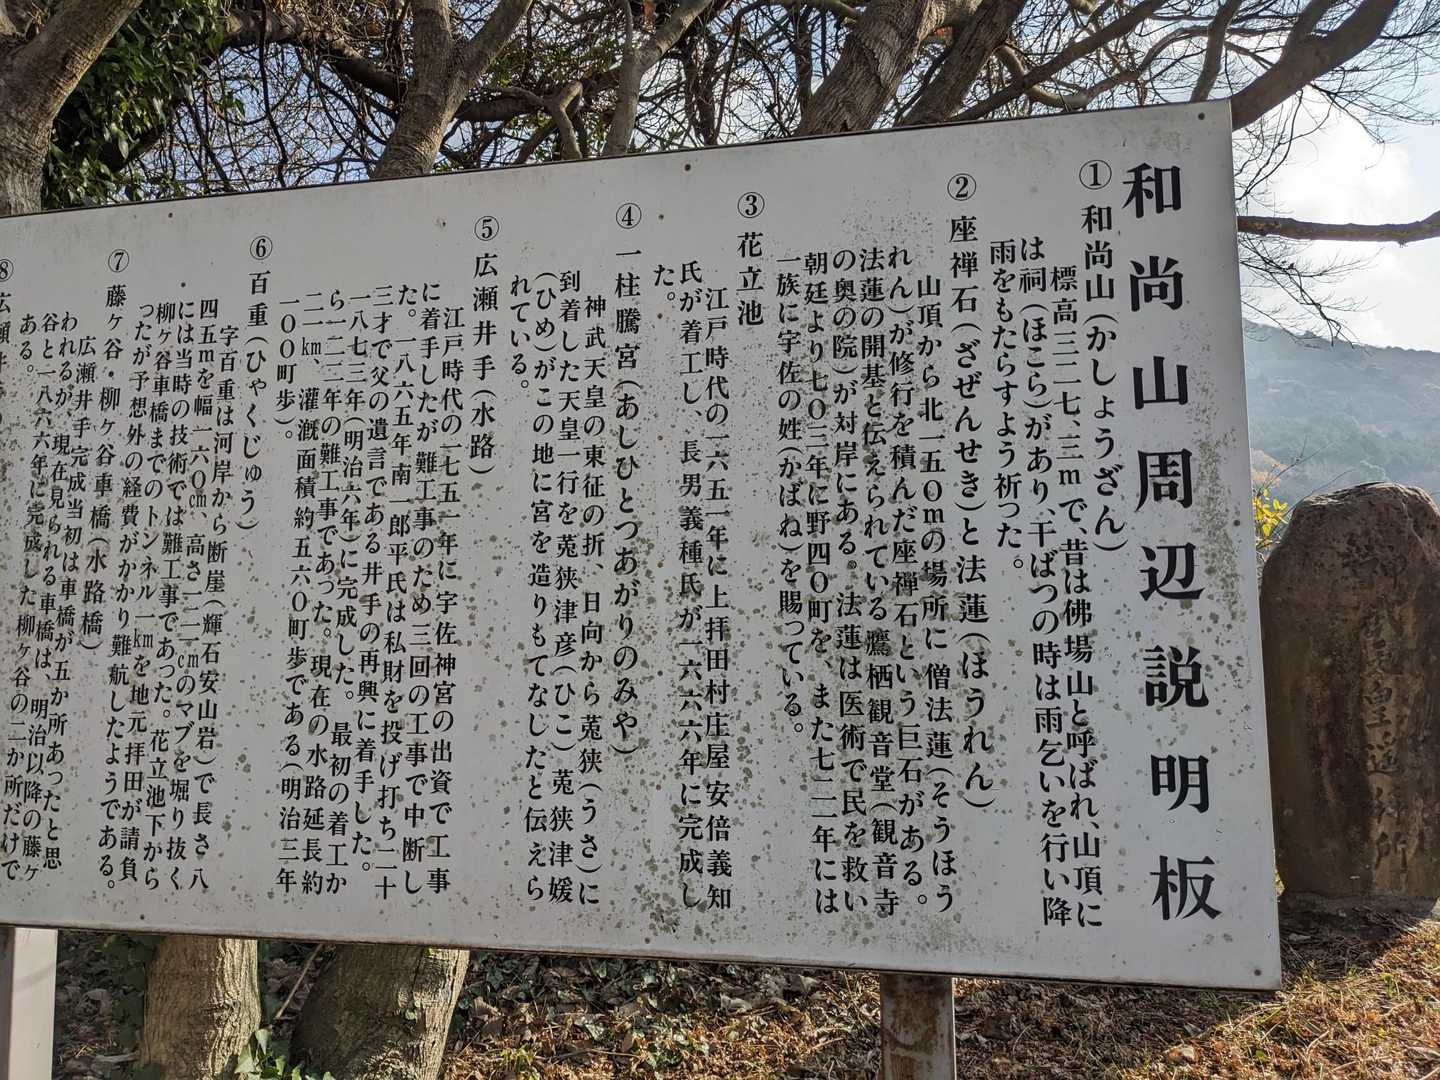 和尚山周辺説明板
①和尚山(かしょうざん)
標高三二七、三mで、昔は佛場山と呼ばれ、山頂に
は祠(ほこら)があり、干ばつの時は雨乞いを行い降
雨をもたらすよう祈った。
②座禅石(ざぜんせき)と法蓮(ほうれん)
山頂から北一五〇mの場所に僧法蓮(そうほう
れん)が修行を積んだ座禅石という巨石がある。
法蓮の開基と伝えられている鷹栖観音堂(観音寺
の奥の院)が対岸にある。法蓮は医術で民を救い
朝廷より七〇三年に野四〇町を、また七二一年には
一族に宇佐の姓(かばね)を賜っている。
③花立池
江戸時代の一六五一年に上拝田村庄屋安倍義知
氏が着工し、長男義種氏が一六六六年に完成し
た。
④一柱騰宮(あしひとつあがりのみや)
神武天皇の東征の折、日向から菟狭(うさ)に
到着した天皇一行を菟狭津彦(ひこ)菟狭津媛
(ひめ)がこの地に宮を造りもてなしたと伝えら
れている。
⑤広瀬井手(水路)
江戸時代の一七五一年に宇佐神宮の出資で工事
に着手したが難工事のため三回の工事で中断し
た。一八六五年南一郎平氏は私財を投げ打ち二十
三才で父の遺言である井手の再興に着手した。
一八七三年(明治六年)に完成した。最初の着工か
ら一二二年の難工事であった。現在の水路延長約
二一㎞、灌漑面積約五六〇町歩である(明治三年
一〇〇町歩)。
⑥百重(ひゃくじゅう)
字百重は河岸から断崖(輝石安山岩)で長さ八
四五mを幅一六〇㎝、高さ一二一㎝のマブを堀り抜く
には当時の技術では難工事であった。花立池下から
柳ヶ谷車橋までのトンネル一㎞を地元拝田が請負
ったが予想外の経費がかかり難航したようである。
⑦藤ヶ谷・柳ヶ谷車橋(水路橋)
広瀬井手完成当初は車橋が五か所あったと思
われるが、現在見られる車橋は、明治以降の藤ヶ
谷と一八六六年に完成した柳ヶ谷の二か所だけで
ある。
⑧広瀬井手
神武天皇遥拝所